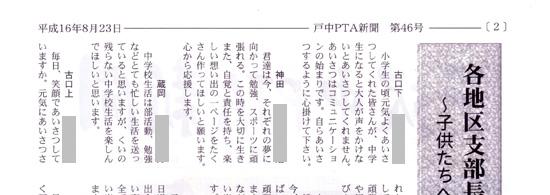 平成16年8月23日 戸中PTA新聞 第46号 〔2〕
各地区支部長
〜子供たちへ
古口下
小学生の頃元気よくあいさ
つしてくれた皆さんが、中学
生になると大人が声をかけな
いとあいさつしてくれません。
あいさつはコミュニケーショ
ンの始まりです。自らあいさ
つするように心掛けて下さい。
神田
君達は今、それぞれの夢に
向かって勉強、スポーツに頑
張れる。この時を大切に生き
また、自覚と責任を持ち、楽
しい想い出の一ページをたく
さん作ってほしいと願います。
心から応援します。
蔵岡
中学校生活は部活動、勉強
などとても忙しい生活を送っ
ていると思いますが、くいの
残らない中学校生活を楽しん
でほしいと思います。
古口上
毎日、笑顔であいさつして
いますか。元気にあいさつさ